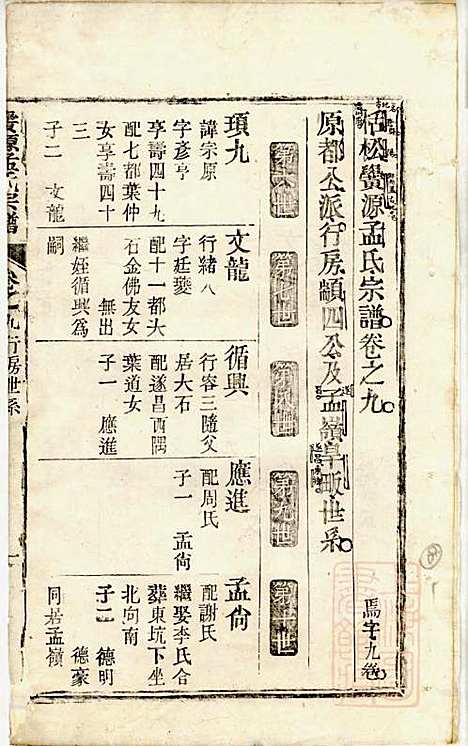 括松蠻源孟氏宗譜卷之九
馬字九卷
原都公派行房顓四公及孟嶺阜畈世系
第十六世
第十七世
第十八世
第十九世
第二十世
頊九
諱宗原
字彥亨
享壽四十九
配七都葉仲
女享壽四十
三
子二 文龍
文龍
行緒八
字廷夔
配十一都大
石金佛友女
無出
繼姪循興爲
嗣
循興
行容三隨父
居大石
配遂昌西隅
葉道女
子一 應進
應進
配周氏
子一 孟尙
孟尙
配謝氏
繼娶李氏合
葬東坑下坐
北向南
子二 德明
德豪
同居孟嶺
卷之九行房世系